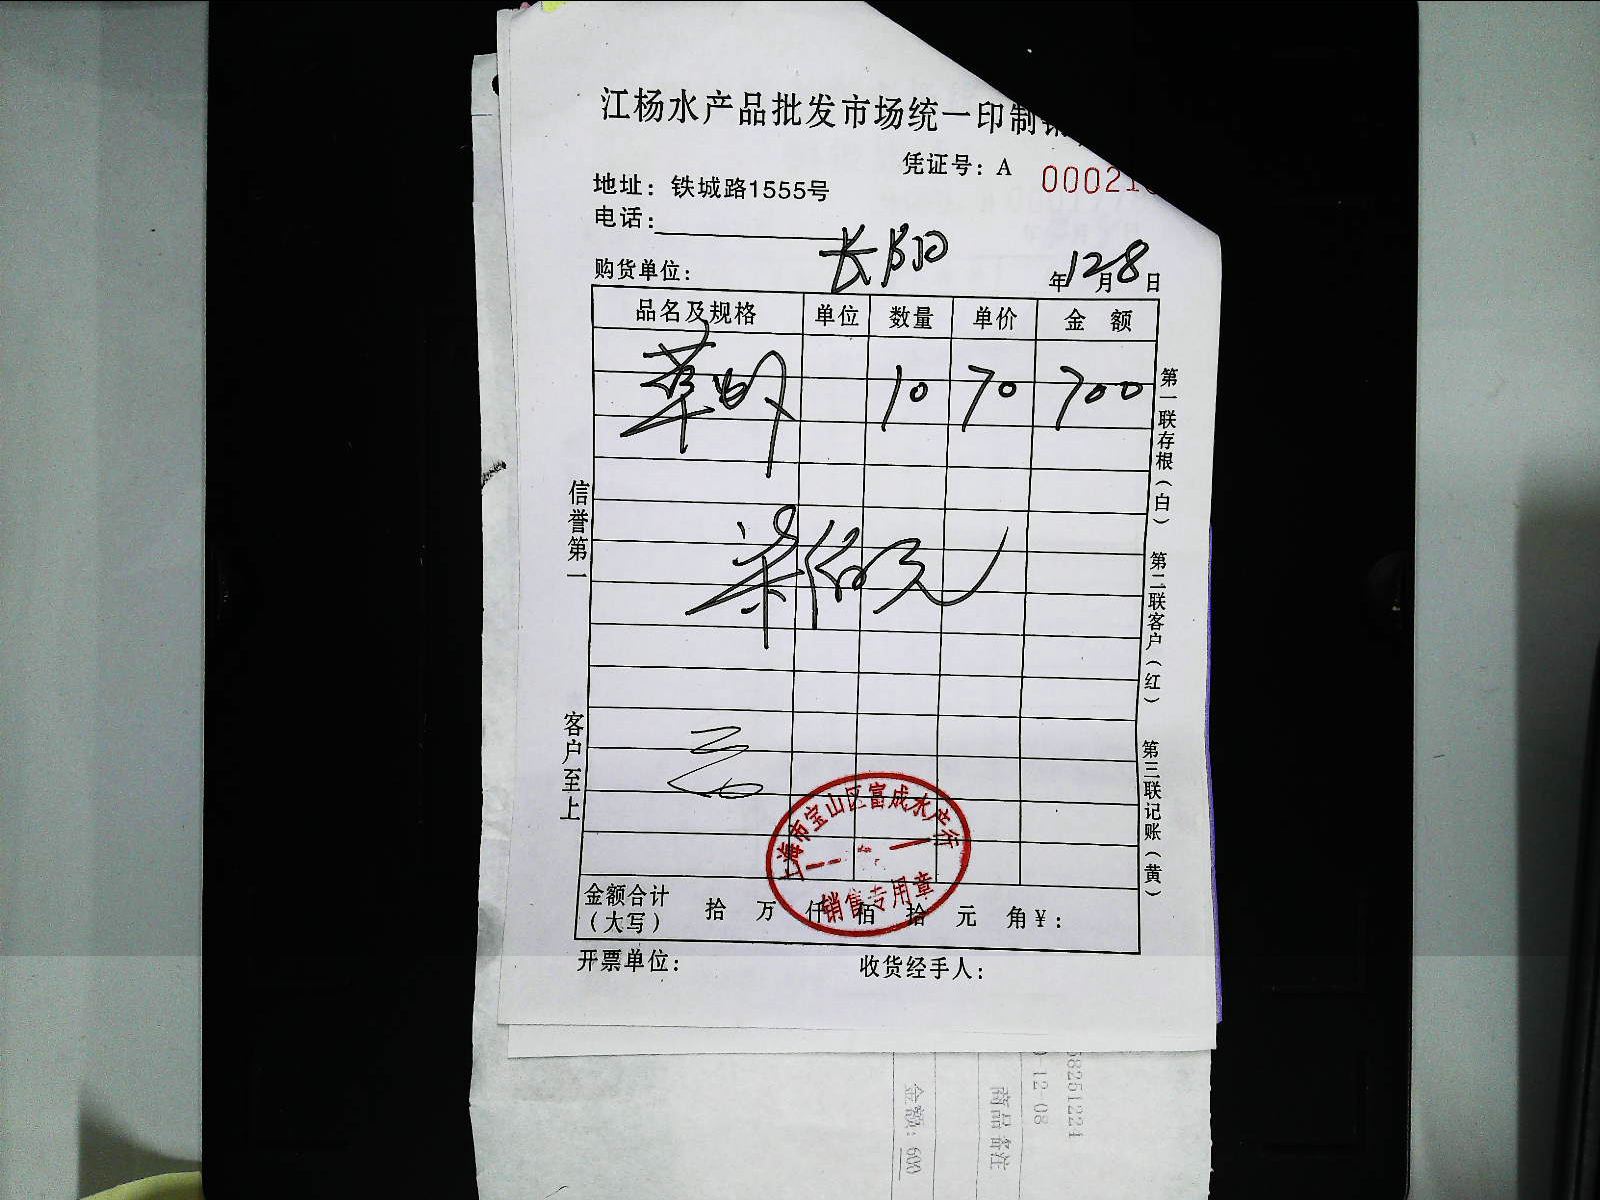 江杨水产品批发市场统一印制
凭证号：A 00021
地址：铁城路1555号
电话：
购货单位： 长阳 年12月8日
品名及规格 单位 数量 单价 金 额
草虾 10 70 700
柒佰元
云
信誉第一
客户至上
第一联存根（白）
第二联客户（红）
第三联记账（黄）
上海市宝山区富成水产行
销售专用章
金额合计（大写） 拾 万 仟 佰 拾 元 角￥：
开票单位： 收货经手人：
58251224
-12-08
商品备注
金额：600